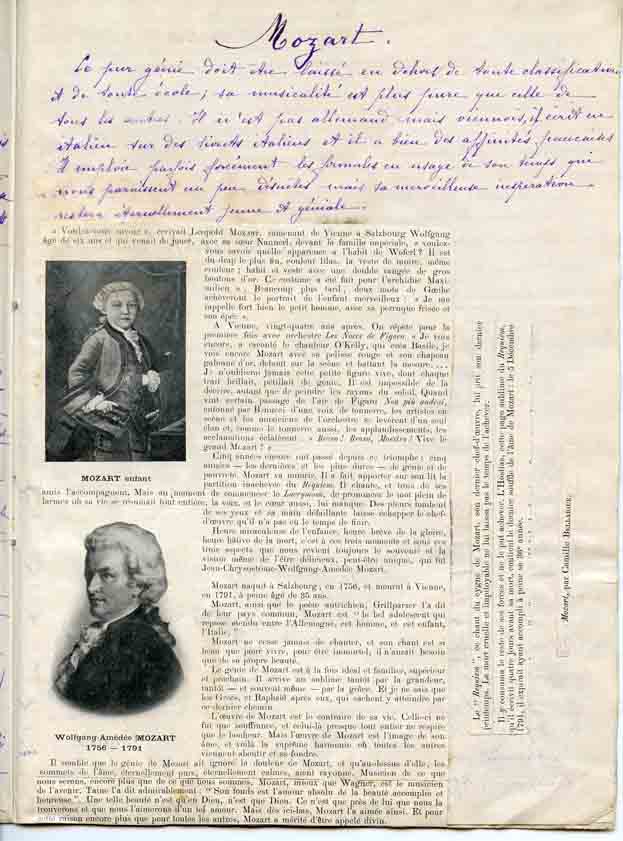 Mozart.
Ce pur génie doit être laissé en dehors de toute classification
et de toute école ; sa musicalité est plus pure que celle de
tous les autres. Il n'est pas allemand mais viennois, il écrit en
italien sur des livrets italiens et il a bien des affinités françaises
Il emploie parfois forcément les formules en usage de son temps qui
nous paraissent un peu désuètes mais sa merveilleuse inspiration
restera éternellement jeune et géniale.
« Voulez-vous savoir », écrivait Léopold Mozart, ramenant de Vienne à Salzbourg Wolfgang
âgé de six ans et qui venait de jouer, avec sa sœur Nannerl, devant la famille impériale, « voulez-
vous savoir quelle apparence a l'habit de Woferl ? Il est
du drap le plus fin, couleur lilas, la veste de moire, même
couleur ; habit et veste avec une double rangée de gros
boutons d'or. Ce costume a été fait pour l'archiduc Maxi-
milien ». Beaucoup plus tard, deux mots de Gœthe
achèveront le portrait de l'enfant merveilleux : « Je me
rappelle fort bien le petit homme, avec sa perruque frisée et
son épée ».
A Vienne, vingt-quatre ans après. On répète pour la
première fois avec orchestre Les Noces de Figaro. « Je vois
encore, a raconté le chanteur O'Kelly, qui créa Basile, je
vois encore Mozart avec sa pelisse rouge et son chapeau
galonné d'or, debout sur la scène et battant la mesure....
Je n'oublierai jamais cette petite figure vive, dont chaque
trait brillait, pétillait de génie. Il est impossible de la
décrire, autant que de peindre les rayons du soleil. Quand
vint certain passage de l'air de Figaro Non più andrai,
entonné par Benucci d'une voix de tonnerre, les artistes en
scène et les musiciens de l'orchestre se levèrent d'un seul
élan et, comme le tonnerre aussi, les applaudissements, les
acclamations éclatèrent : « Bravo ! Bravo, Maestro ! Vive le
grand Mozart ! »
Cinq années encore ont passé depuis ce triomphe ; cinq
années — les dernières et les plus dures — de génie et de
pauvreté. Mozart va mourir. Il a fait apporter sur son lit la
partition inachevée du Requiem. Il chante, et tous de ses
MOZART enfant
amis l'accompagnent. Mais au moment de commencer le Lacrymosa, de prononcer le mot plein de
larmes où sa vie se résumait tout entière, la voix, et le cœur aussi, lui manque. Des pleurs tombent
de ses yeux et sa main défaillante laisse échapper le chef-
d'œuvre, qu'il n'a pas eu le temps de finir.
Heure miraculeuse de l'enfance, heure brève de la gloire,
heure hâtive de la mort, c'est à ces trois moments et sous ces
trois aspects que nous revient toujours le souvenir et la
vision même de l'être délicieux, peut-être unique, qui fut
Jean-Chrysostome-Wolfgang-Amédée Mozart.
Mozart naquit à Salzbourg, en 1756, et mourut à Vienne,
en 1791, à peine âgé de 35 ans.
Mozart, ainsi que le poète autrichien, Grillparzer l'a dit
de leur pays commun, Mozart est « le bel adolescent qui
repose étendu entre l'Allemagne, cet homme, et cet enfant,
l'Italie. »
Mozart ne cesse jamais de chanter, et son chant est si
beau que pour vivre, pour être immortel, il n'aurait besoin
que de sa propre beauté.
Le génie de Mozart est à la fois idéal et familier, supérieur
et prochain. Il arrive au sublime tantôt par la grandeur,
tantôt — et souvent même — par la grâce. Et je ne sais que
les Grecs, et Raphaël après eux, qui sachent y atteindre par
ce dernier chemin
L'œuvre de Mozart est le contraire de sa vie. Celle-ci ne
fut que souffrance, et celui-là presque tout entier ne respire
que le bonheur. Mais l'œuvre de Mozart est l'image de son
âme, et voilà la suprême harmonie où toutes les autres
viennent aboutir et se fondre.
Wolfgang-Amédée MOZART
1756 — 1791
Il semble que le génie de Mozart ait ignoré la douleur de Mozart, et qu'au-dessus d'elle, les
sommets de l'âme, éternellement purs, éternellement calmes, aient rayonné. Musicien de ce que
nous serons, encore plus que de ce que nous sommes, Mozart, mieux que Wagner, est le musicien
de l'avenir. Taine l'a dit admirablement : "Son fonds est l'amour absolu de la beauté accomplie et
heureuse". Une telle beauté n'est qu'en Dieu, n'est que Dieu. Ce n'est que près de lui que nous la
trouverons et que nous l'aimerons d'un tel amour. Mais dès ici-bas, Mozart l'a aimée ainsi. Et pour
cette raison encore plus que pour toutes les autres, Mozart a mérité d'être appelé divin.
Le "Requiem", ce chant du cygne de Mozart, son dernier chef-d'œuvre, lui prit son dernier
printemps. La mort cruelle et impitoyable ne lui laissa pas le temps de l'achever.
Il y consuma le reste de ses forces et ne le put achever. L'Hostias, cette page sublime du Requiem,
qu'il écrivit quatre jours avant sa mort, contient le dernier souffle de l'âme de Mozart : le 5 Décembre
1791, il expirait ayant accompli à peine sa 36e année.
Mozart, par Camille Bellaigue.